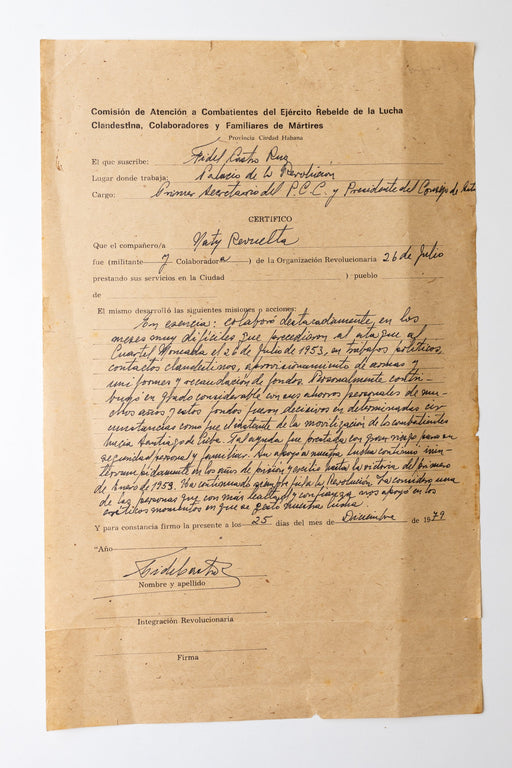 Comisión de Atención a Combatientes del Ejército Rebelde de la Lucha
Clandestina, Colaboradores y Familiares de Mártires
Provincia Ciudad Habana
El que suscribe: Fidel Castro Ruz
Lugar donde trabaja: Palacio de la Revolución
Cargo: Primer Secretario del P.C.C. y Presidente del Consejo de
CERTIFICO
Que el compañero/a Naty Revuelta
fue (militante y Colaboradora ) de la Organización Revolucionaria 26 de Julio
prestando sus servicios en la Ciudad ) pueblo
de
El mismo desarrolló las siguientes misiones o acciones:
En esencia: colaboró destacadamente, en los
meses muy difíciles que precedieron al ataque al
Cuartel Moncada el 26 de Julio de 1953, en trabajos políticos,
contactos clandestinos, aprovisionamiento de armas y
uniformes y recaudación de fondos. Personalmente contri-
buyó en grado considerable con sus ahorros personales de mu-
chos años y estos fondos fueron decisivos en determinadas cir-
cunstancias como fue el instante de la movilización de los combatientes
hacia Santiago de Cuba. Tal ayuda fue prestada con gran riesgo para su
seguridad personal y familiar. Su apoyo a nuestra lucha continuó inin-
terrumpidamente en los años de prisión y exilio hasta la victoria del primero
de Enero de 1959. Ha continuado siempre junto a la Revolución. La considero una
de las personas que con más lealtad y confianza nos apoyó en los
críticos momentos en que se gestó nuestra lucha.
Y para constancia firmo la presente a los 25 días del mes de Diciembre de 1979
"Año
Fidel Castro
Nombre y apellido
Integración Revolucionaria
Firma